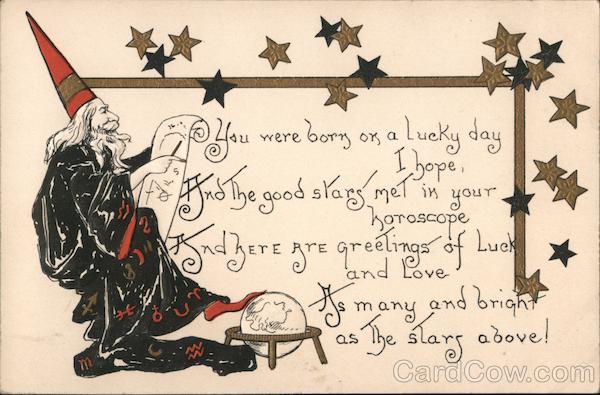 You were born on a Lucky day
I hope,
And the good stars met in your
horoscope
And here are greetings of Luck
and Love
As many and bright
as the stars above!
CardCow.com